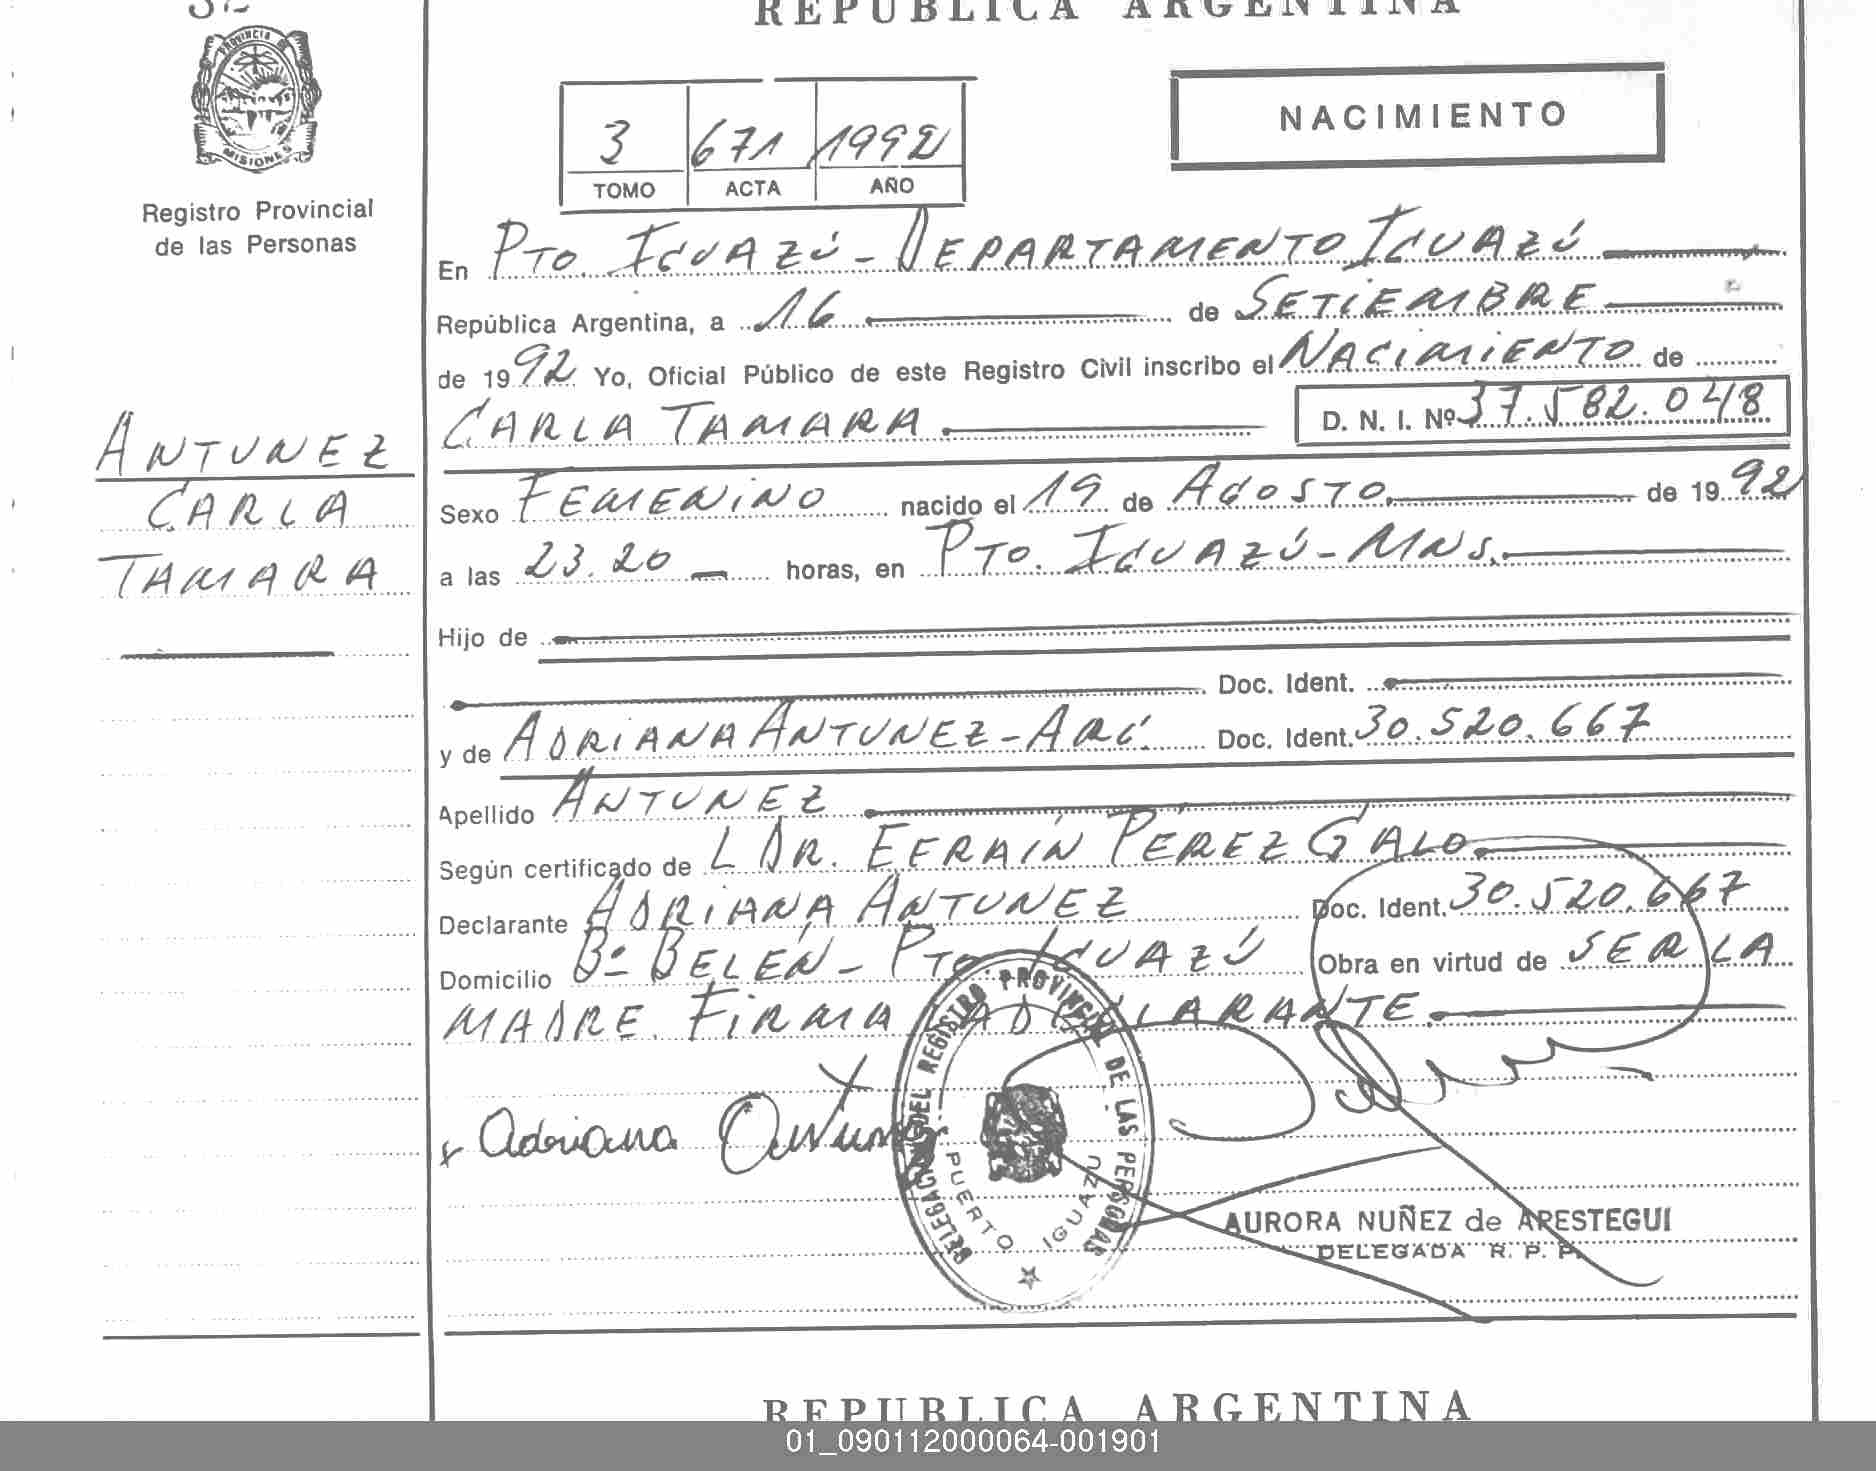 REPUBLICA ARGENTINA
PROVINCIA DE
MISIONES
Registro Provincial
de las Personas
3 671 1992
TOMO ACTA AÑO
NACIMIENTO
En PTO. IGUAZÚ - DEPARTAMENTO IGUAZÚ
República Argentina, a 16 de SETIEMBRE
de 1992 Yo, Oficial Público de este Registro Civil inscribo el NACIMIENTO de
CARLA TAMARA D. N. I. Nº 37.582.048
ANTUNEZ
CARLA
TAMARA
Sexo FEMENINO nacido el 19 de AGOSTO de 1992
a las 23.20 horas, en PTO. IGUAZÚ - MNS.
Hijo de
Doc. Ident.
y de ADRIANA ANTUNEZ - ARG. Doc. Ident. 30.520.667
Apellido ANTUNEZ
Según certificado de L DR. EFRAÍN PÉREZ GALO
Declarante ADRIANA ANTUNEZ Doc. Ident. 30.520.667
Domicilio Bº BELÉN - PTO. IGUAZÚ Obra en virtud de SER LA
MADRE. FIRMA LA DECLARANTE.
x Adriana Antunez
DELEGACION DEL REGISTRO PROVINCIAL DE LAS PERSONAS
PUERTO IGUAZU
AURORA NUÑEZ de ARESTEGUI
DELEGADA R. P. P.
REPUBLICA ARGENTINA
01_090112000064-001901